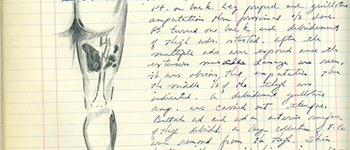 Pt. on back. Leg prepped and guillotine
amputation then proximal 1/3 done.
Pt turned on back and debridement
of thigh also started. After the
multiple wds were exposed and the
extensive muscle damage was seen,
it was obvious that amputation thru
the middle 1/3 of the thigh was
indicated. A debridement guillotine
amp. was carried out
Buttock wd and wds anterior surface
of thigh debrided. A large collection of F.B.
were removed from the thigh. Skin